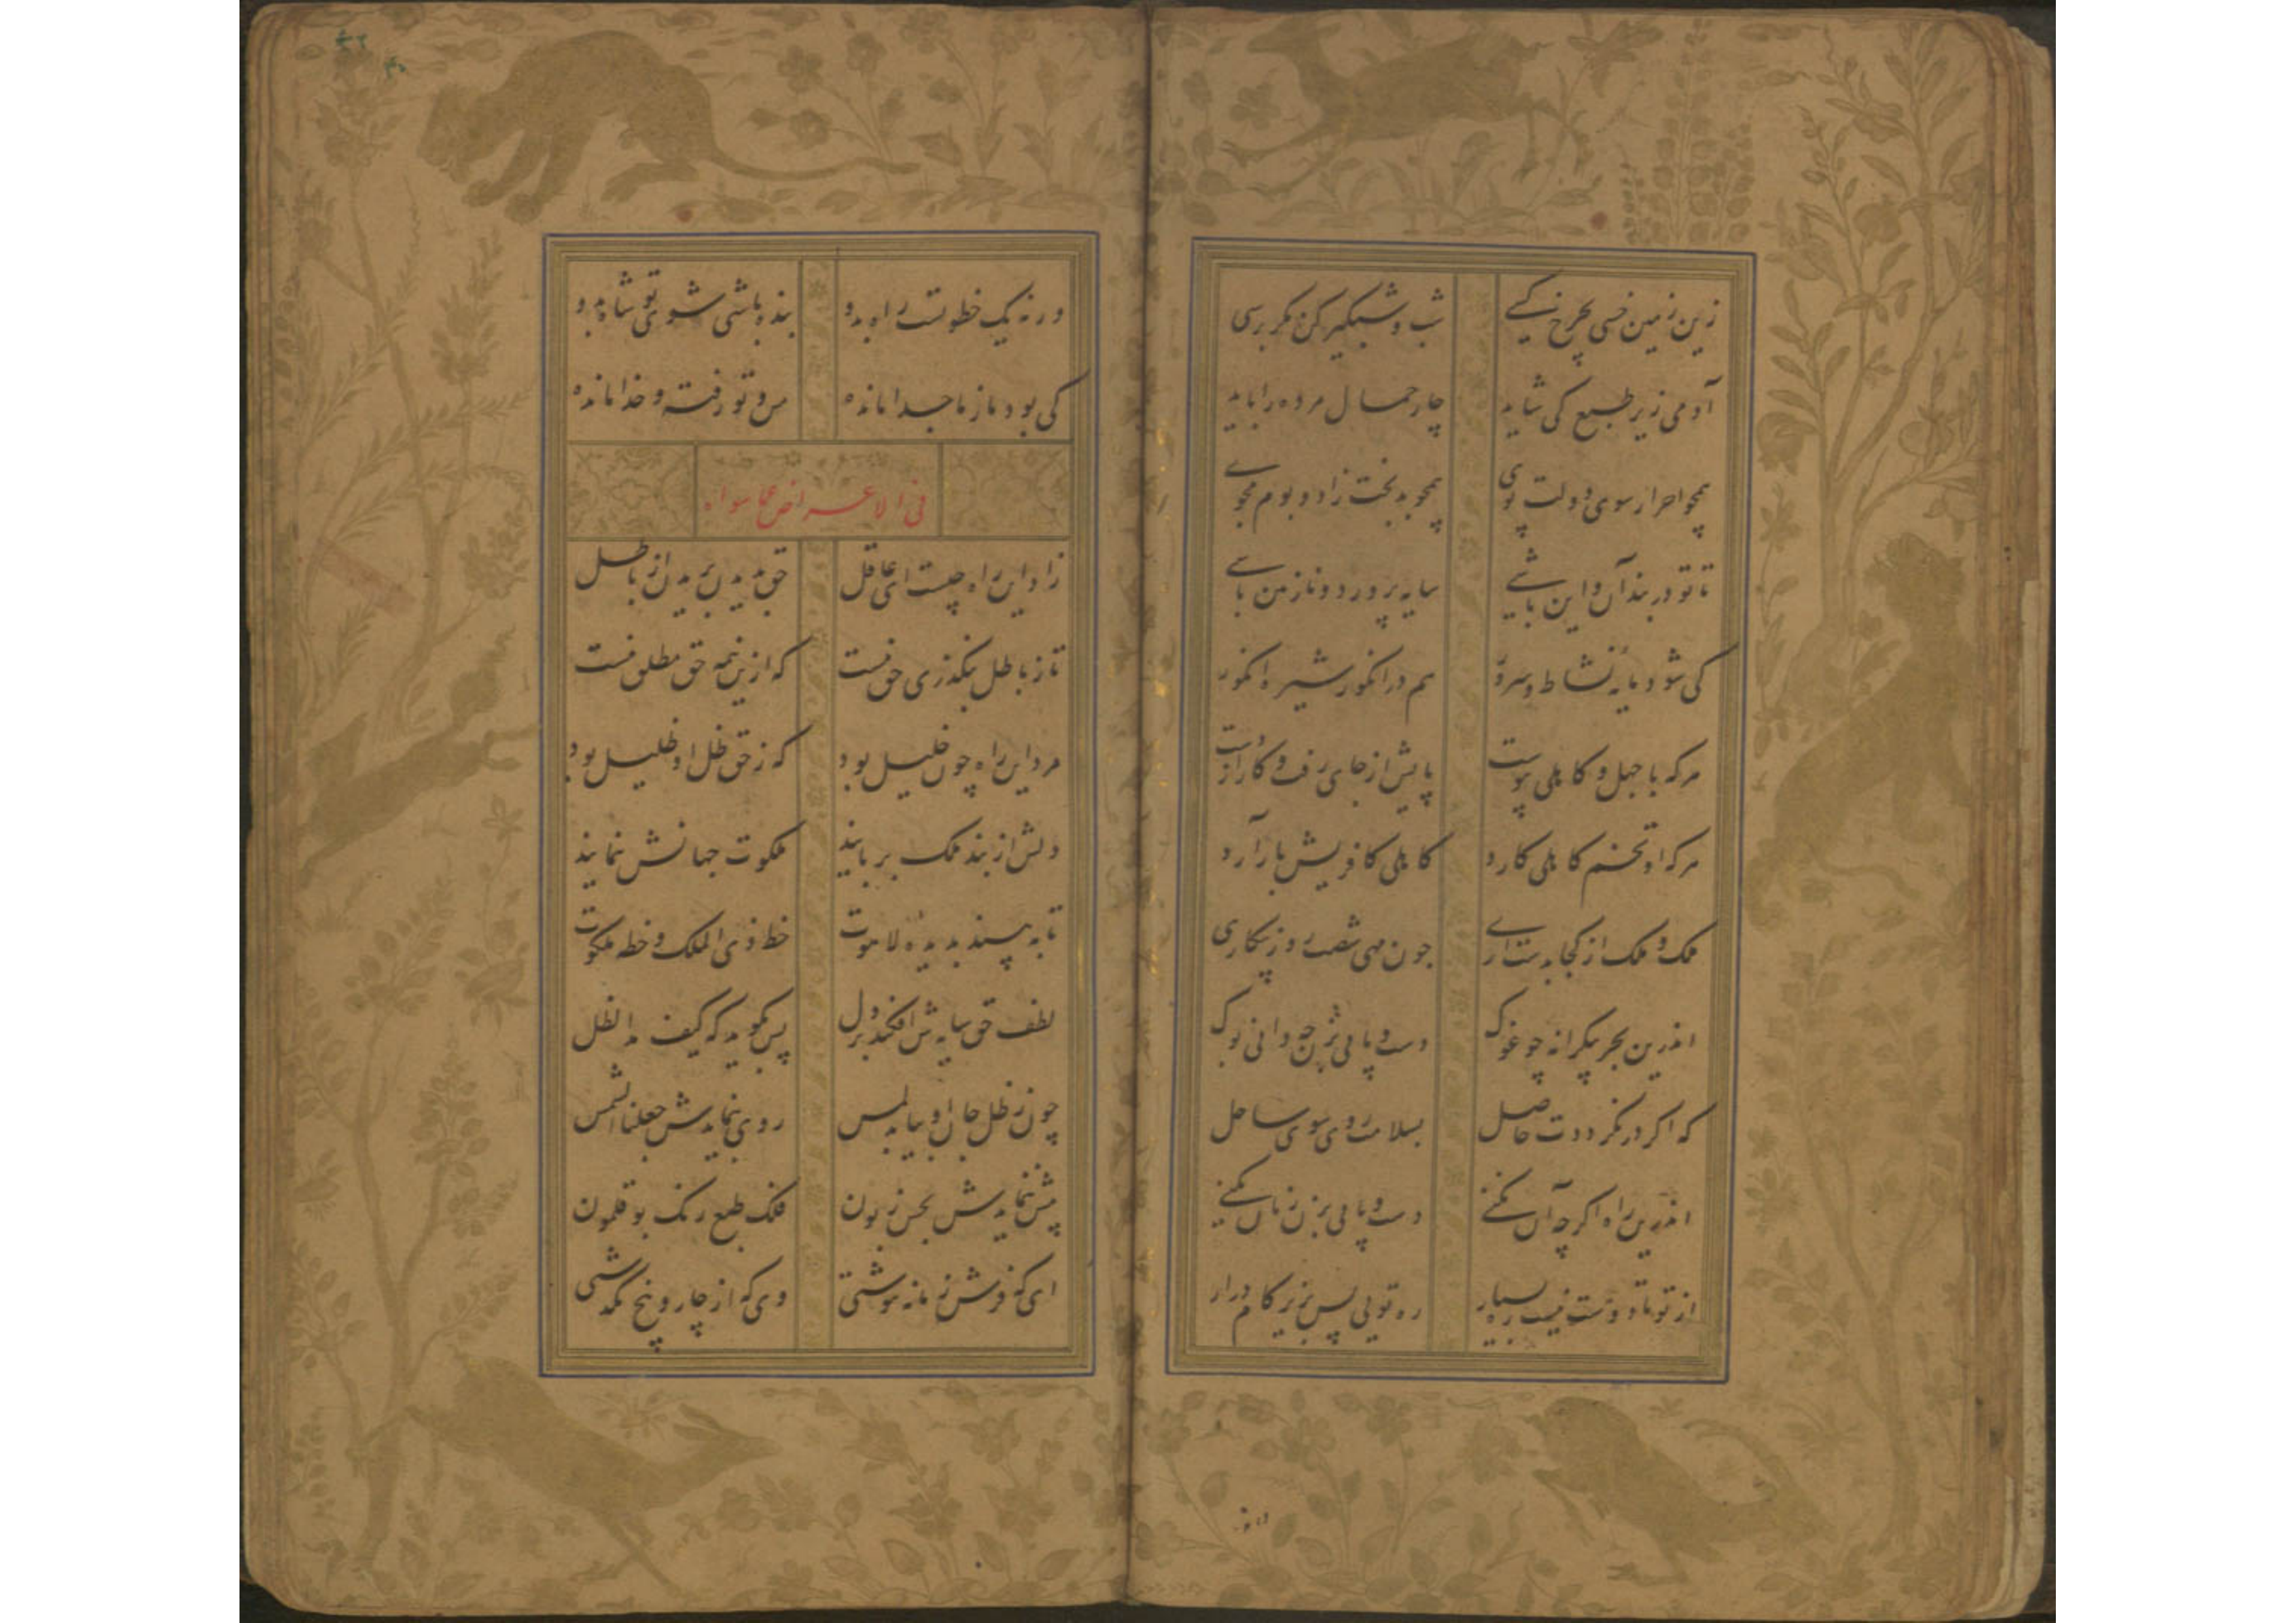 زین زمین خسی بچرخ کسی شب و شبگیر کن مگر برسی
آدمی زیر طبع کی شاید چار حمال مرده را باید
همچو احرار سوی دولت پوی همچو بدبخت زاد و بوم مجوی
تا تو در بند آن و این باشی سایه پرورد و نازنین باشی
کی شود مایه نشاط و سرور هم در انگور شیره انگور
هرکه با جهل و کاهلی پیوست پایش از جای رفت و کار از دست
هرکه او تخم کاهلی کارد کاهلی کافریش بار آرد
ملک و ملک از کجا بدست آری چون مهی شصت روز بیکاری
اندرین بحر بیکرانه چو غوک دست و پایی بزن چه دانی بوک
که اگر در نگرددت حاصل بسلامت روی سوی ساحل
اندرین راه اگرچه آن نکنی دست و پایی بزن زیان نکنی
از تو تا دوست نیست ره بسیار ره تویی پس بزیر کام درار
ورنه یک خطوتست راه بدو بنده باشی شوی تو شاه بدو
کی بود ما ز ما جدا مانده من و تو رفته و خدا مانده
فی الاعراض عما سواه
زاد این راه چیست ای عاقل حق بدیدن بریدن از باطل
تا ز باطل بنگذری حق نیست که ازین نیمه حق مطلق نیست
مرد این راه چون خلیل بود که ز حق ظل او ظلیل بود
دلش از بند ملک بربایند ملکوت جهانش بنمایند
تا به بیند بدیده لاهوت خط ذی الملک و خطه ملکوت
لطف حق سایه‌ش افکند بر دل پس بگوید که کیف مد الظل
چون ز ظل جان او بیابد لمس روی بنمایدش جعلنا الشمس
پیش بنمایدش بحس زبون فلک طبع رنگ بوقلمون
ای که فرش زمانه بنوشتی وی که از چار و پنج بگذشتی